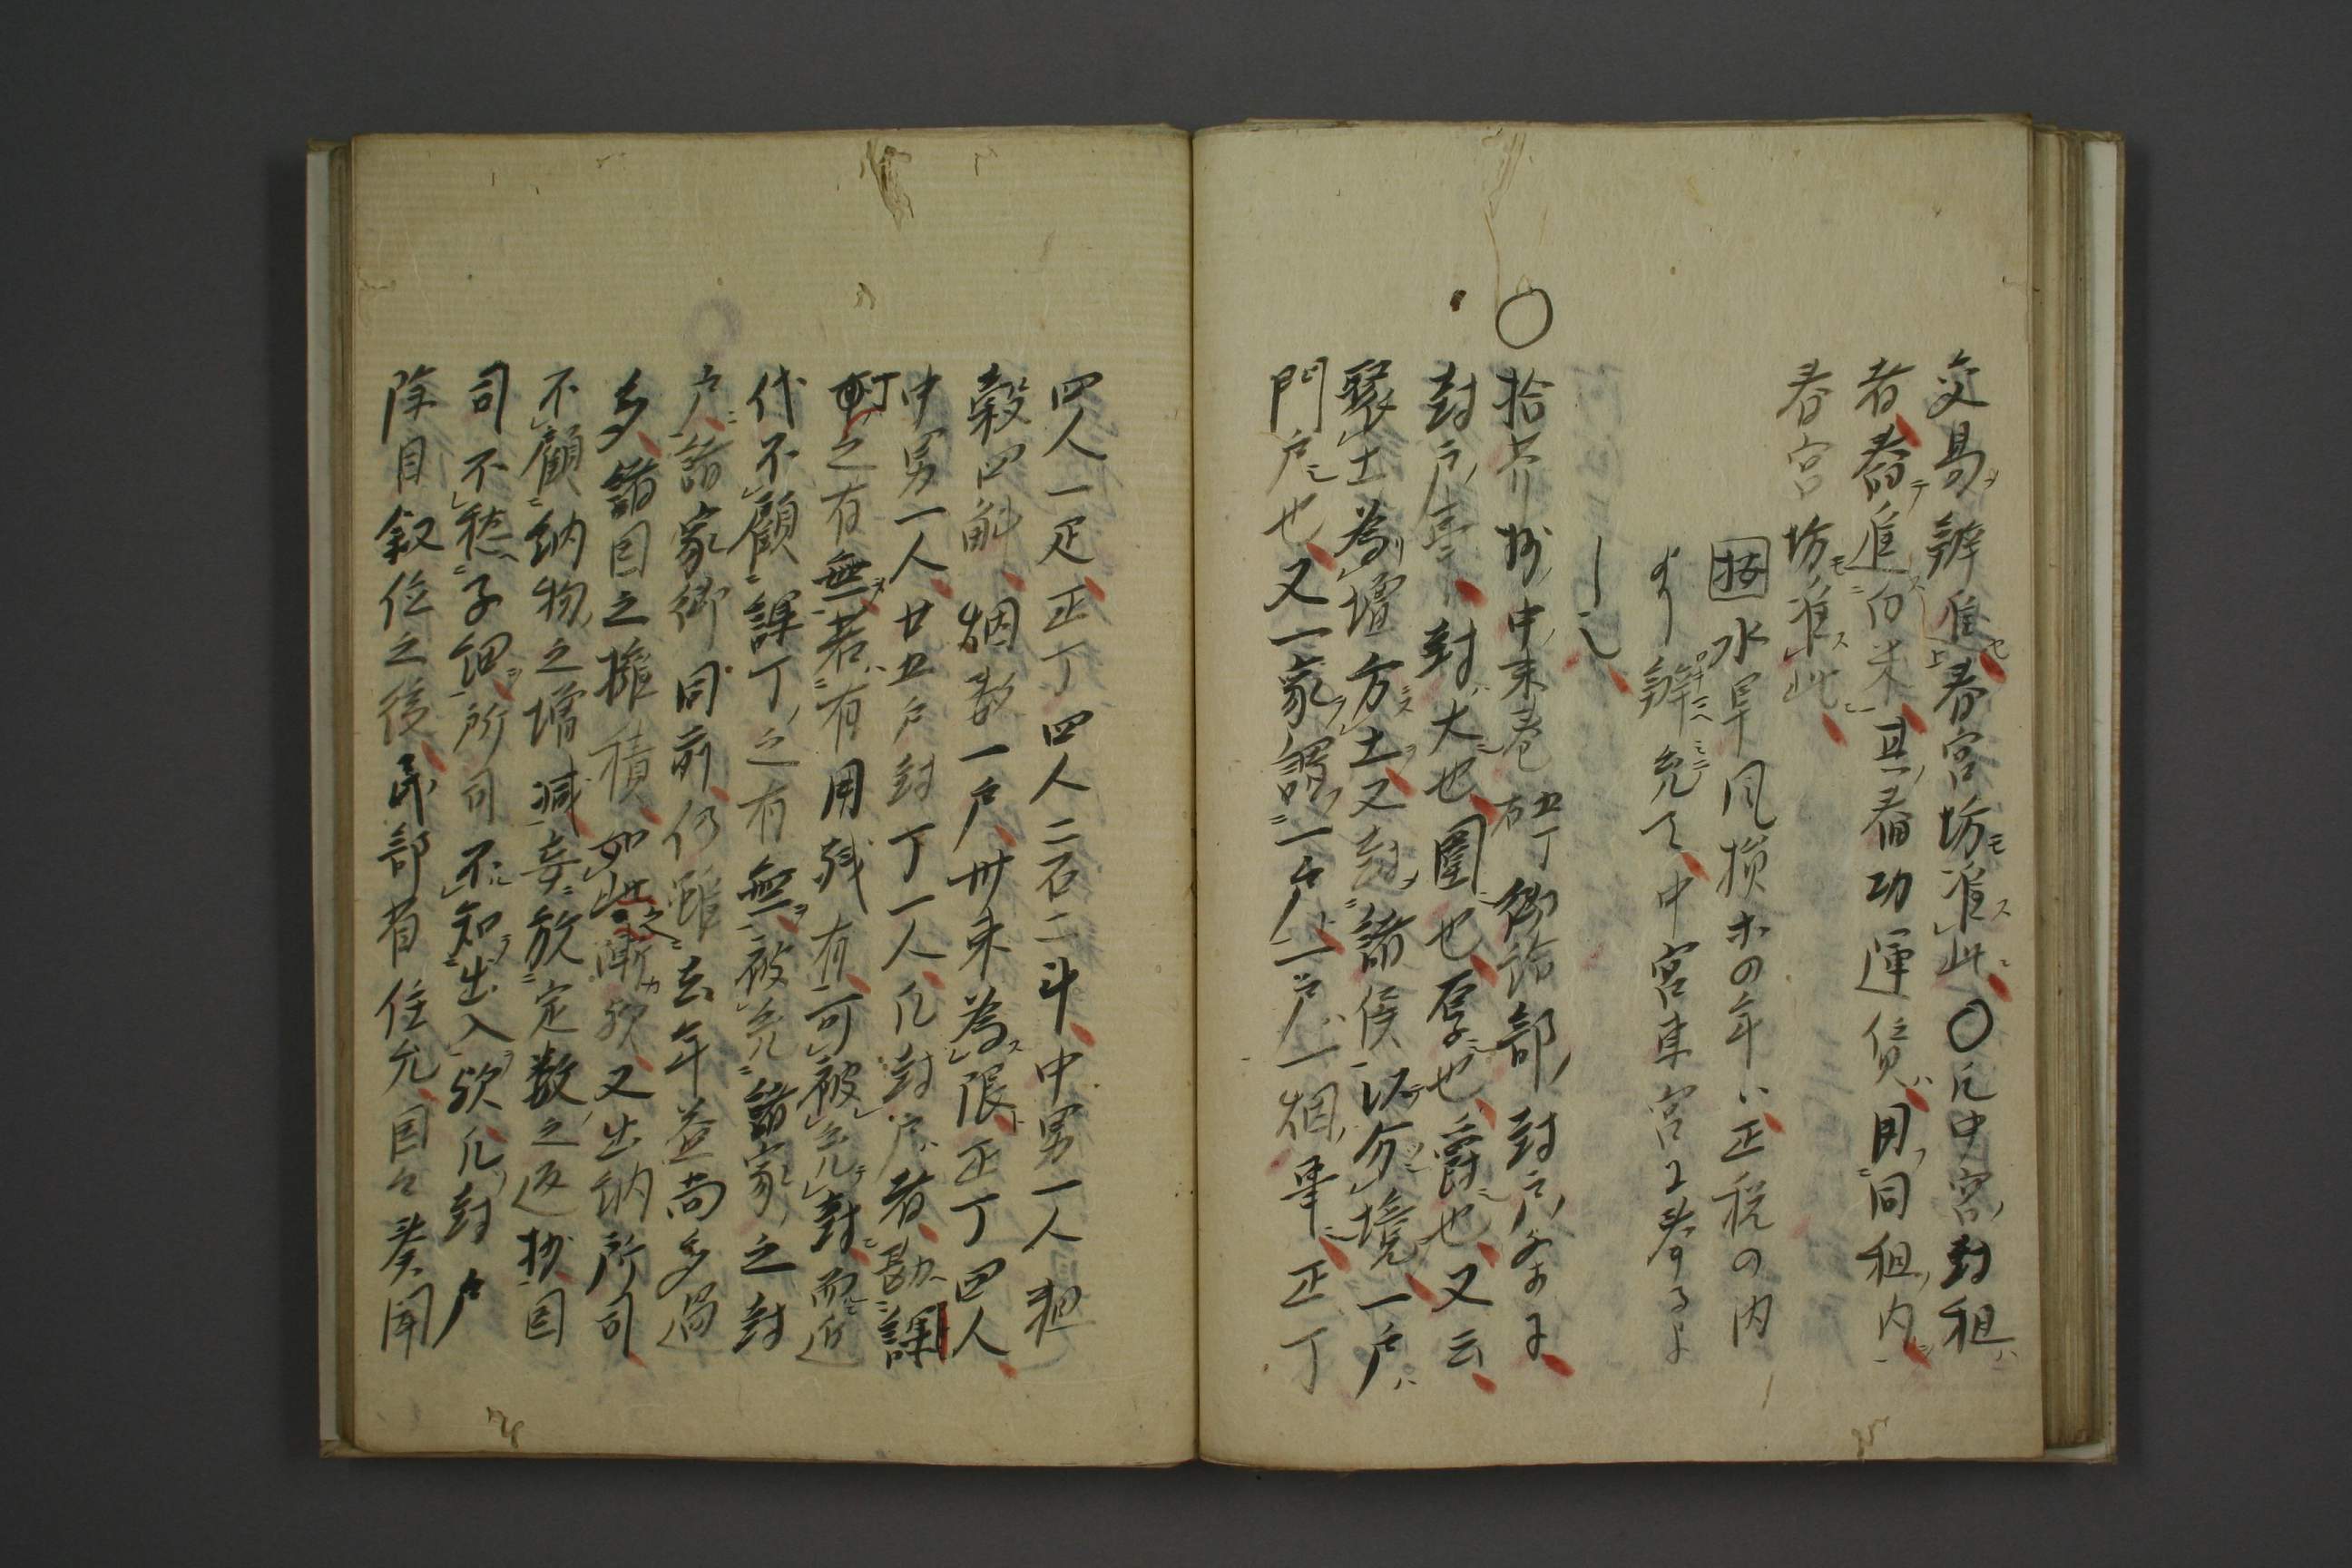 交易辨進春宮坊准此〇凡中宮封租
者舂進白米其舂功運賃用同租内
春宮坊准此
按水旱風損ホの年ハ正税の内
より辨充て中宮東宮に奉るよ
し也
〇拾芥抄中末巻五十丁右郷部封戸条に
封戸事封大也圍也厚也爵也又云
聚土為壇方土又封諸侯以分境一戸
門戸也又一家謂一戸一戸一烟畢正丁
四人一疋正丁四人二石二斗中男一人租
穀四斛烟数一戸卅束為限正丁四人
中男一人廿五戸封丁一人凡封戸者勘課
町之有無若有用残有可被充封而近
代不顧課丁之有無被充諸家之封
戸諸家卿同前仍雖去年益尚多過
多諸国之擁積如此之漸欤又出納所司
不顧納物之増減妄放定数之返抄国
司不愁子細所司不知出入欤凡封戸
除目叙位之後民部省任允国々奏聞